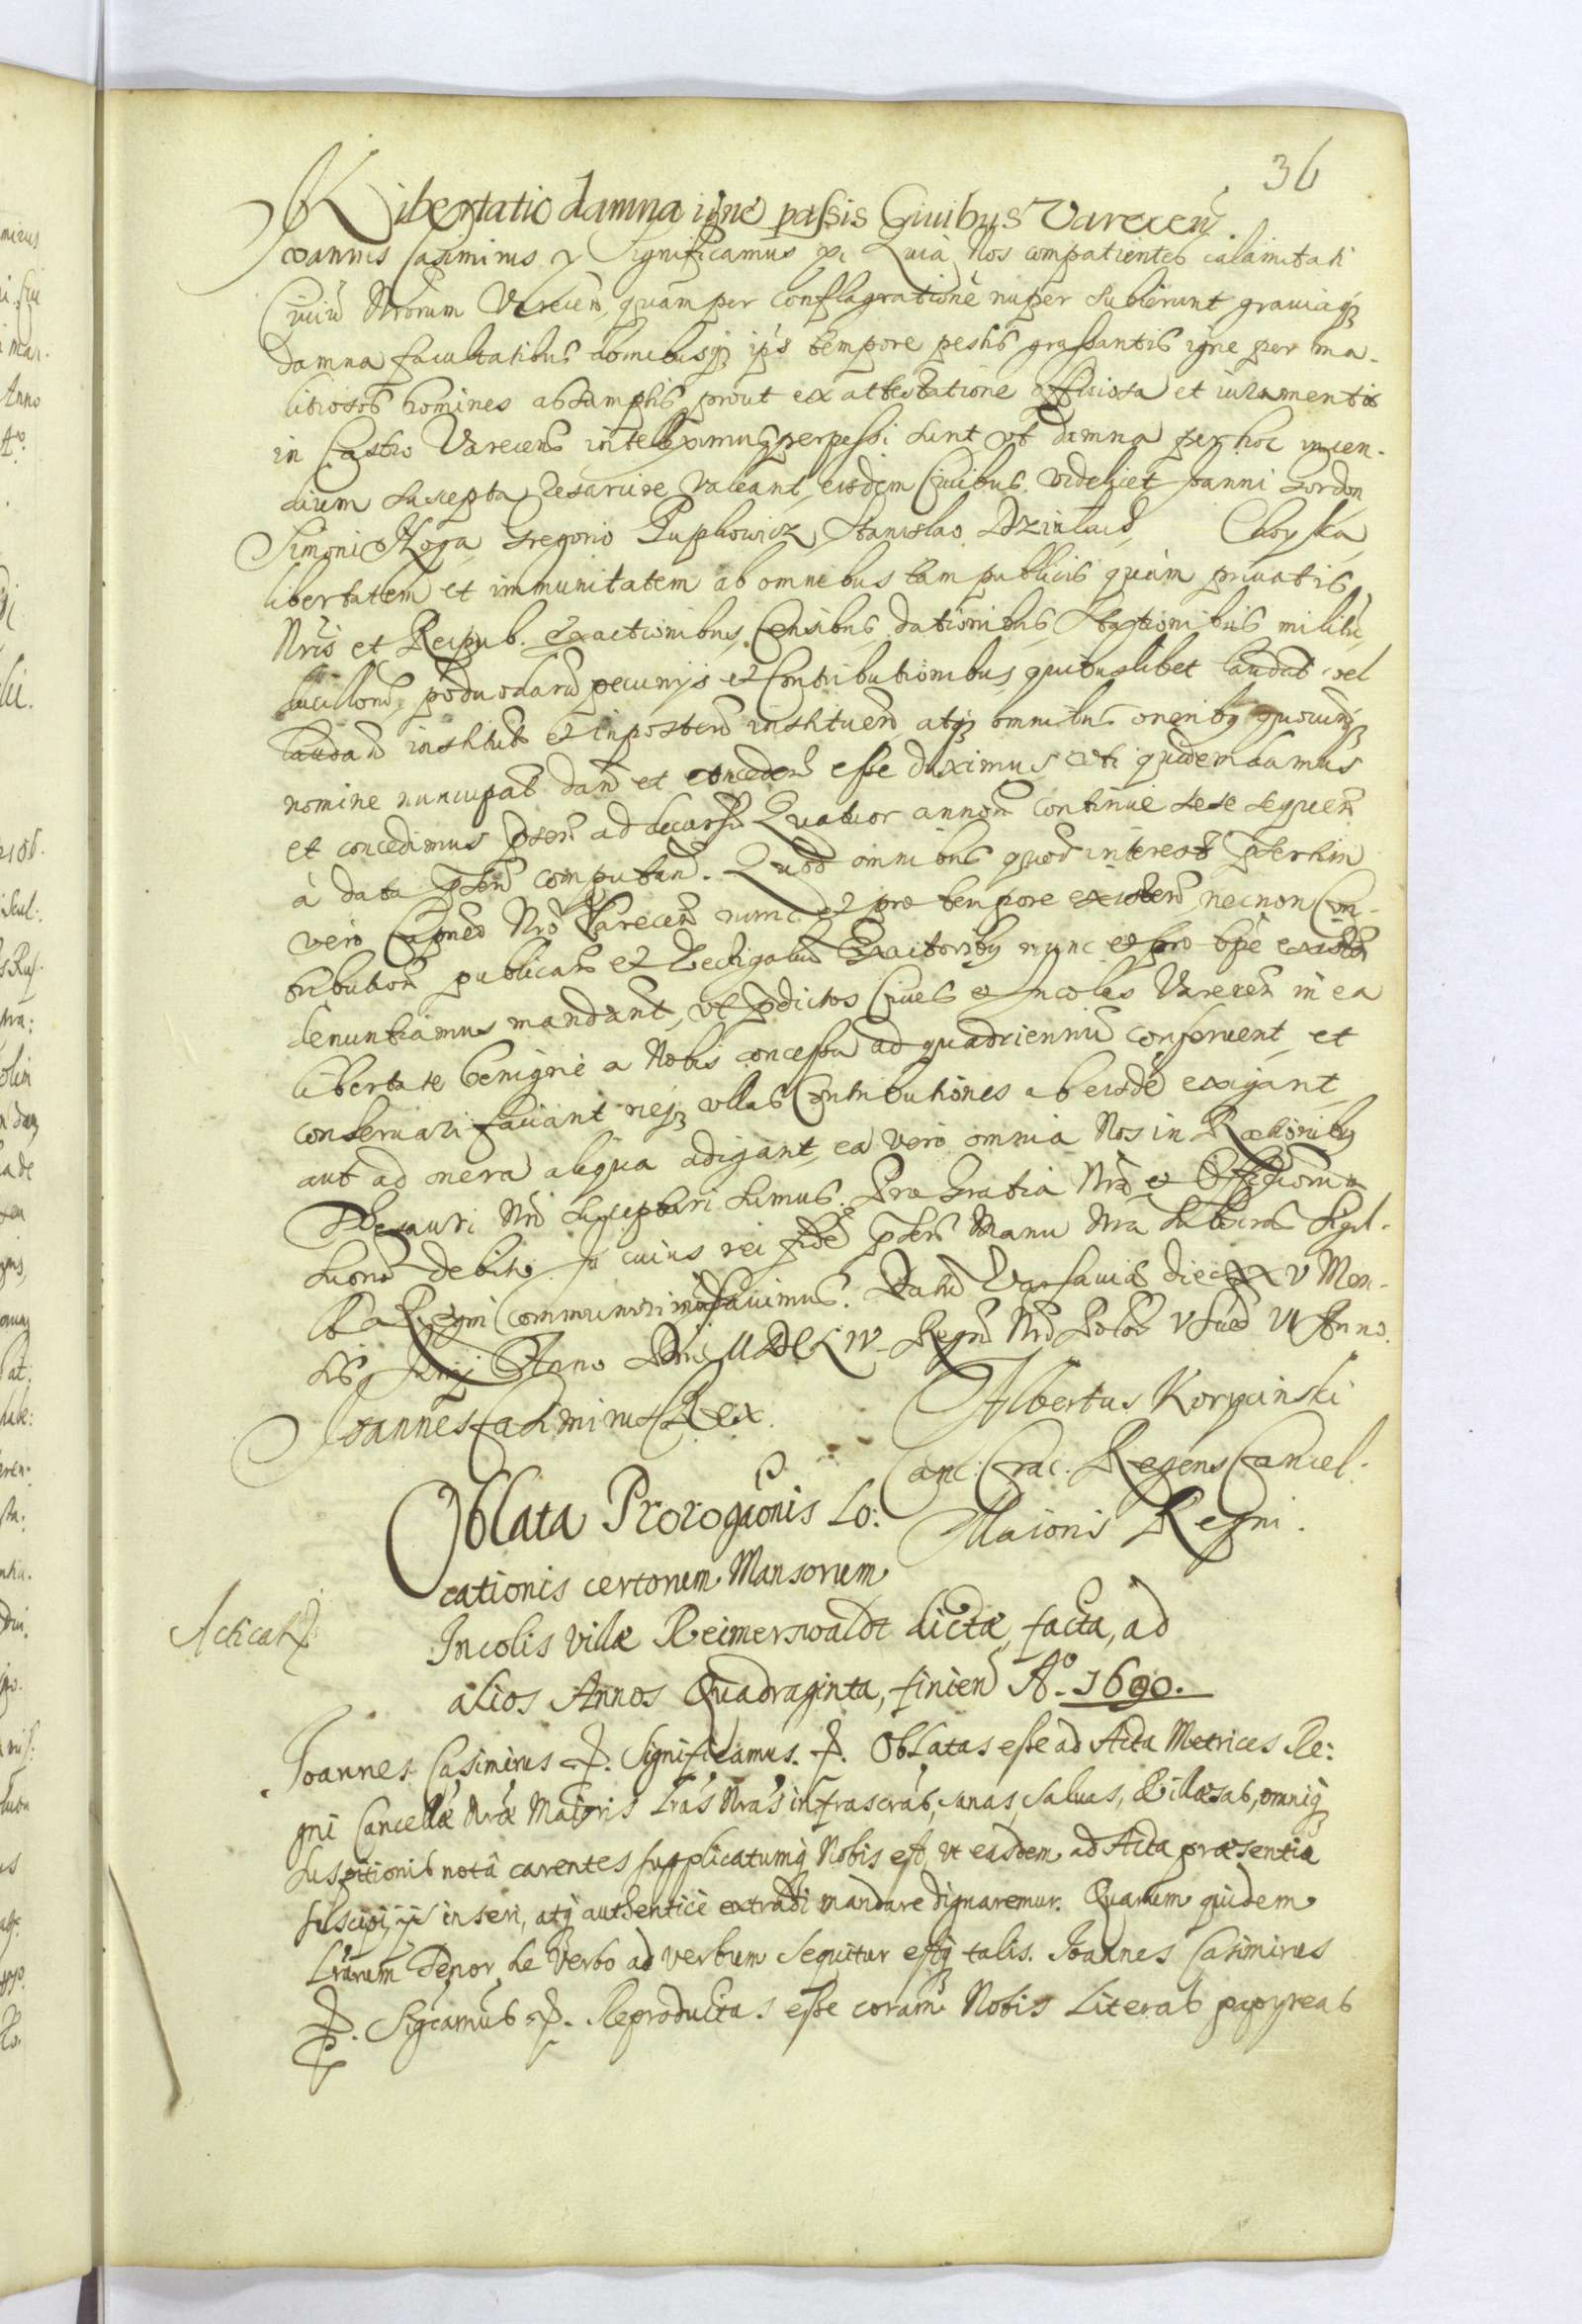 36
Libertatio damna igne passis Ciuibus Varecen̄.
Joannis Casimirus Significamus Quia Nos compatientes calamitati
Ciuiū Nrōrum Varecen̄, quam per conflagrationē nuper subierunt grauiaqз
damna facultatibus domibusqз ips tempore pestis grassantis igne per ma-
litiosos homines absumptis prout ex attestatione officiosa et iuramentis
in Castro Varecens intelleximus perpessi sunt vt damna per hoc incen-
dium suscepta resarcire valeant, eisdem Ciuibus videlicet Joanni Gordon
Simoni Gregorio Stanislao
libertatem et immunitatem ab omnibus tam publicis quàm priuatis
Nrīs et Reipub. exactionibus, Censibus, dationibus, Stationibus militū,
poduodarū pecunijs et Contributionibus quibuslibet laudat vel
laudan̄ institut et inposterū instituen̄ atqз omnibus oneribз quocunqз
nomine nuncupat dan̄ et conceden̄ esse duximus vti quidem damus
et concedimus pn̄ten̄ ad decursū Quatuor annorū continue sese sequen̄
à data pn̄tiū computan̄. Quod omnibus quor̄ interest
vero Capneo Nrō Varecen̄ nunc et pro tempore existen̄ necnon Con-
tribution̄ publicar̄ et Vectigaliū Exactoribз nunc et pro tpē existen̄
denuntiamus mandant, vt pdictos Ciues et Incolas Varecen̄ in ea
libertate benigne a Nobis concessa ad quadrienniū conseruent et
conseruari faciant neqз vllas Contributiones ab eisdē exigant
aut ad onera aliqua adigant, ea vero omnia Nos in Rationibз
Thesauri Nrī suscepturi sumus. Pro Gratia Nrā et Officiorum
suorū debito. In cuius rei fidē pn̄tes Manu Nrā subscrās Sigil-
lo Regni communiri iussimus. Datū Varsauiæ die XXV Men-
sis Junij Anno Dni MDCLIV Regnor̄ Nrōr̄ Polon̄ V Suec̄ VI Anno.
Joannes Casimirus Rex.
Albertus Koryciński
Canc: Crac: Regens Cancel:
Maioris Regni.
Oblata Prorogaōnis Lo:
cationis certorum Mansorum
Incolis villæ Reimerswaldt dictæ, facta, ad
alios Annos Quadraginta, finien̄ Aº. 1690.
Joannes Casimirus Significamus. Oblatas esse ad Acta Metrices Re:
gni Cancellæ Nræ Maioris Lrās Nrās infrascrās, sanas, saluas, & illæsas, omniqз
suspitionis notâ carentes supplicatumqз Nobis est, vt easdem ad Acta præsentia
suscipi, ijs inseri, atqз authenticè extradi mandare dignaremur. Quarum quidem
Lrārum Tenor de Verbo ad verbum sequitur estqз talis. Joannes Casimirus
Sigcamus. Reproductas esse coram Nobis Literas papyreas